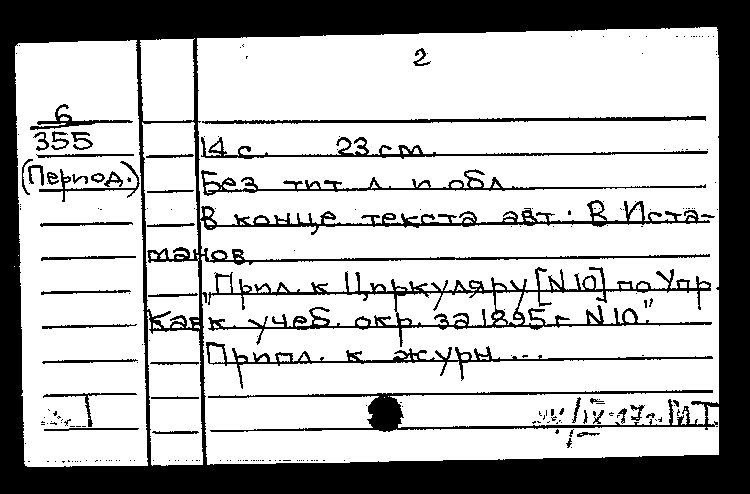 2
6
355
(Период.)
14 с. 23 см.
Без тит. л. и обл.
В конце текста авт.: В. Иста-
манов.
„Прил. к Циркуляру [N 10] по Упр.
Кавк. учеб. окр. за 1895 г. N 10."
Припл. к журн. ...
М.Т.